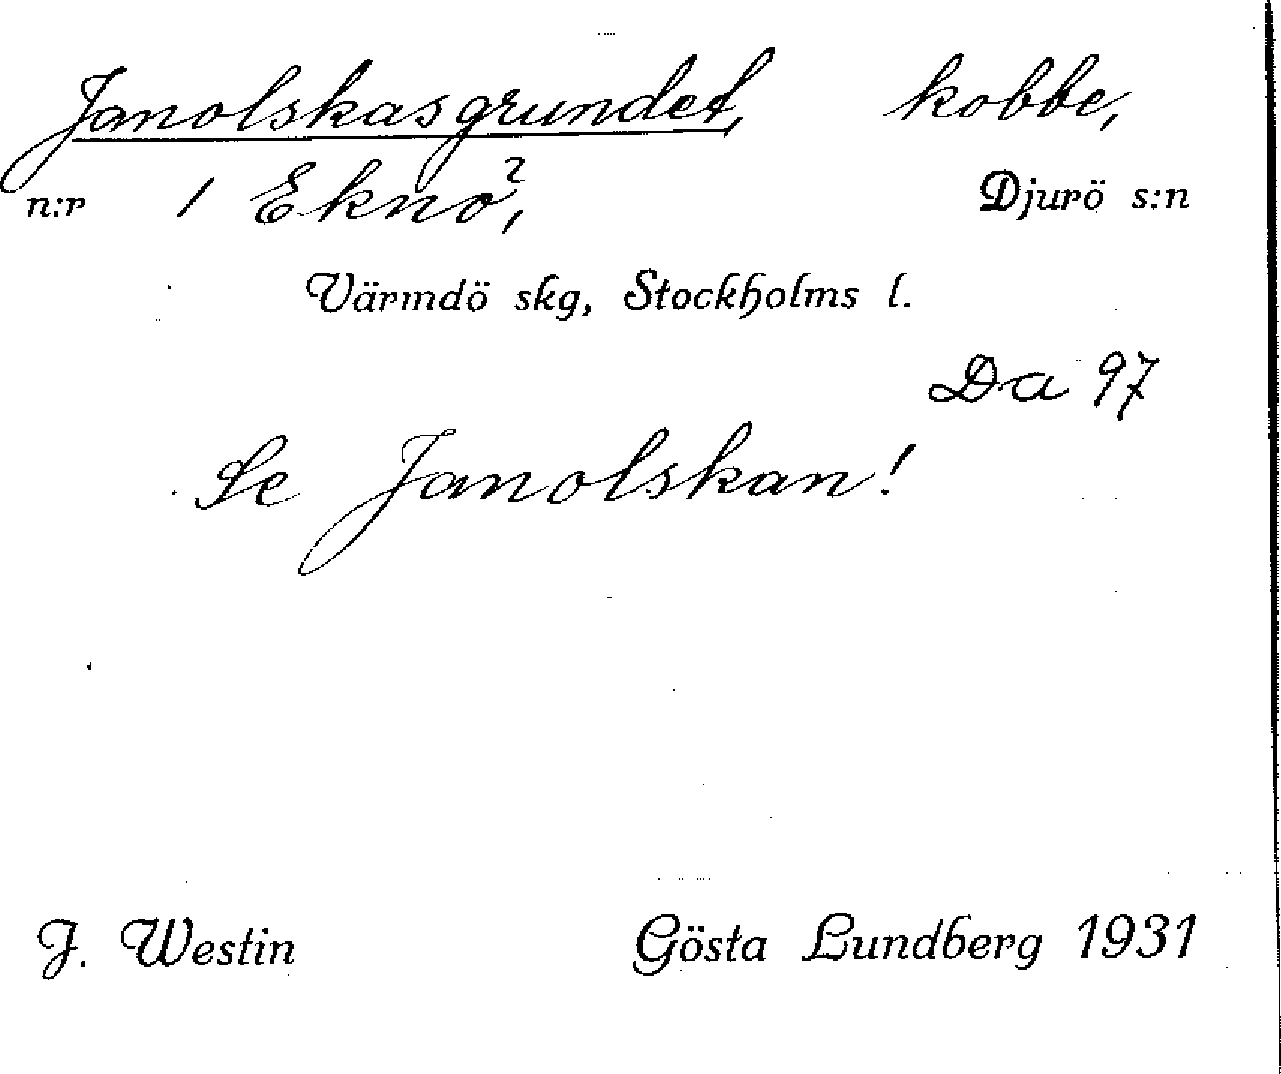 Janolskasgrundet, kobbe,
n:r 1 Eknö, Djurö s:n
Värmdö skg, Stockholms l.
Da 97
Se Janolskan!
J. Westin Gösta Lundberg 1931